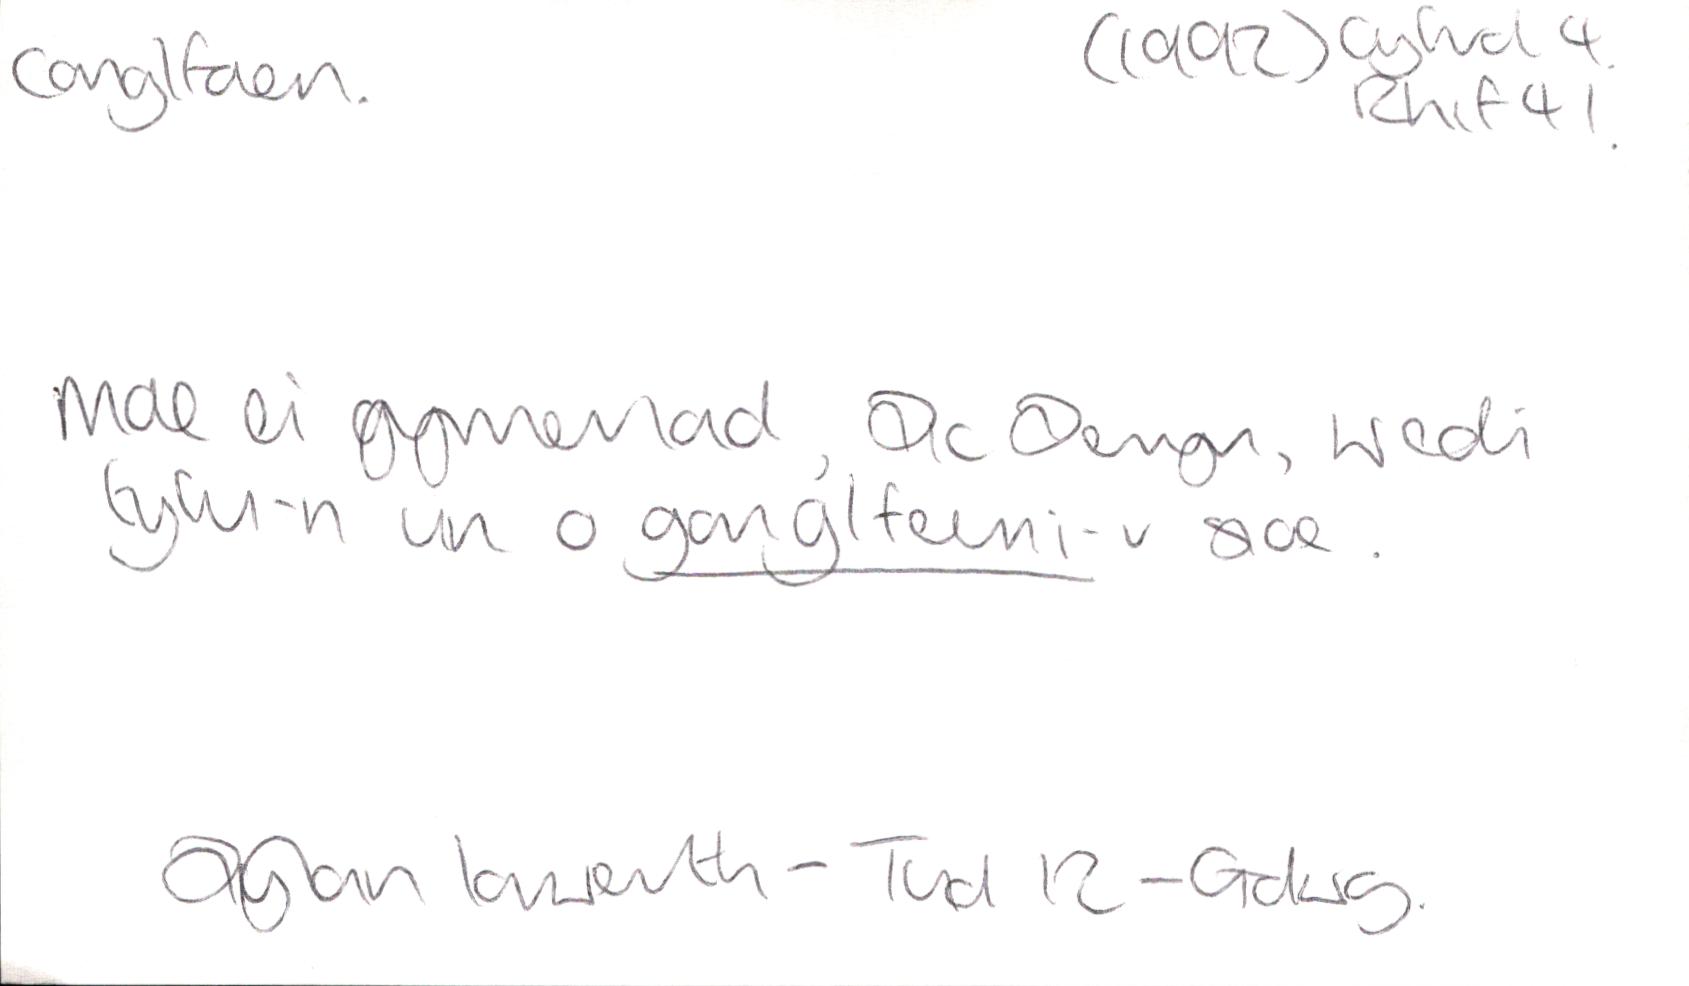 conglfaen.
(1992) Cyfrol 4.
Rhif 41.
Mae ei gwmenad, Dic Dewgn, wedi
tyfu-n un o gonglfeini-r sioe.
Dylan Iorwerth - Tud 12 - Golwg.